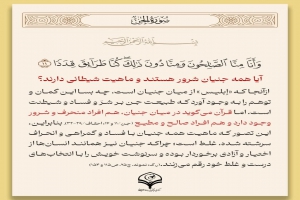 سورة الجن
بسم الله الرحمن الرحيم
وَأَنَّا مِنَّا الصَّالِحُونَ وَمِنَّا دُونَ ذَٰلِكَ كُنَّا طَرَائِقَ قِدَدًا ﴿۱۱﴾
آیا همه جنیان شرور هستند و ماهیت شیطانی دارند؟
ازآنجا که «ابلیس» از میان جنیان است، چه بسا این گمان و
توهم را به وجود آورد که طبیعت جن بر شر و فساد و شیطنت
است، اما قرآن می‌گوید در میان جنیان، هم افراد منحرف و شرور
وجود دارد و هم افراد صالح و مطیع؛ بنابراین،
این تصور که ماهیت همه جنیان با فساد و گمراهی و انحراف
سرشته شده، غلط است؛ چراکه جنیان نیز همانند انسان‌ها از
اختیار و آزادی برخوردار بوده و سرنوشت خویش را با انتخاب‌های
درست و غلط خود رقم می‌زنند.